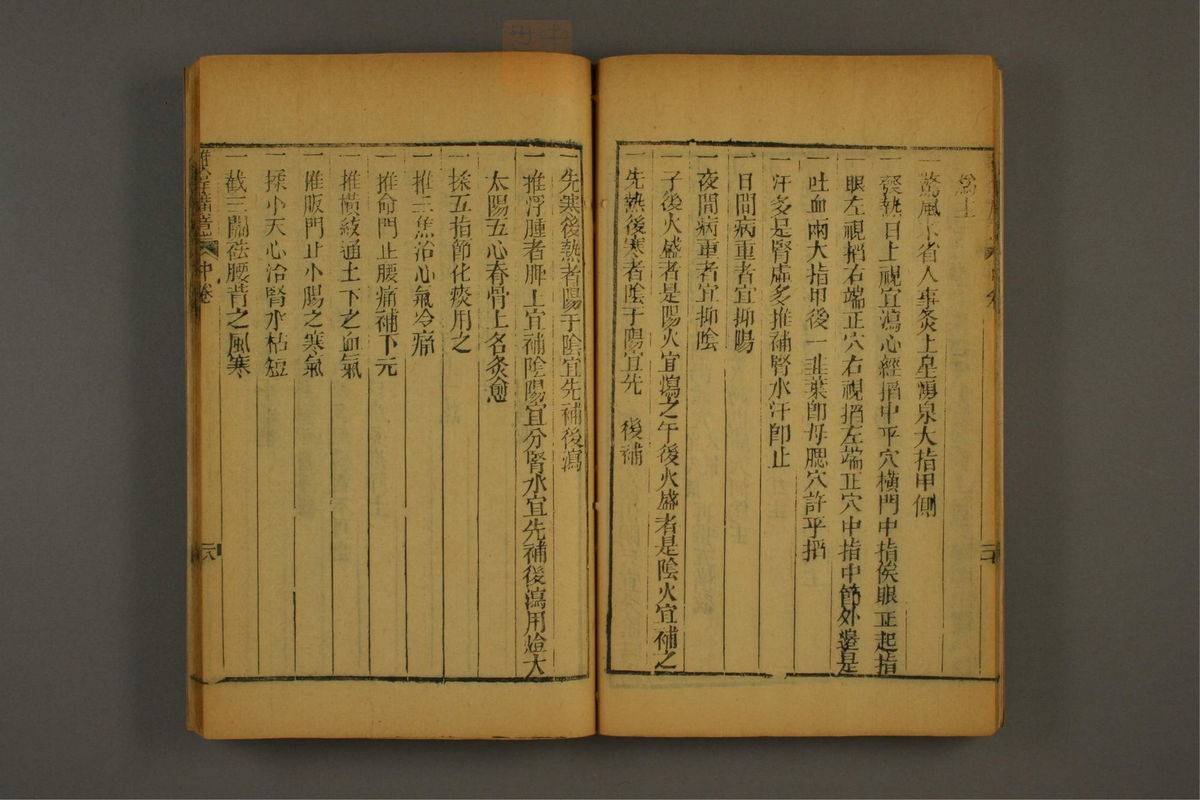 為主
一驚風不省人事灸上星湧泉大指甲側
一發熱日上視宜瀉心經掐中平穴橫門中指俟眼正起指
一眼左視掐右端正穴右視掐左端正穴中指中節外邊是
一吐血兩大指甲後一韭葉卽母腮穴許平掐
一汗多是腎虛多推補腎水汗卽止
一日間病重者宜抑陽
一夜間病重者宜抑陰
一子後火盛者是陽火宜瀉之午後火盛者是陰火宜補之
一先熱後寒者陰干陽宜先 後補
一先寒後熱者陽干陰宜先補後瀉
一推浮腫者脾上宜補陰陽宜分腎水宜先補後瀉用燈火
太陽五心春骨上名灸愈
一揉五指節化痰用之
一推三焦治心氣冷痛
一推命門止腰痛補下元
一推橫紋通土下之血氣
一推版門止小腸之寒氣
一揉小天心治腎水枯短
一截三關祛腰背之風寒
中卷